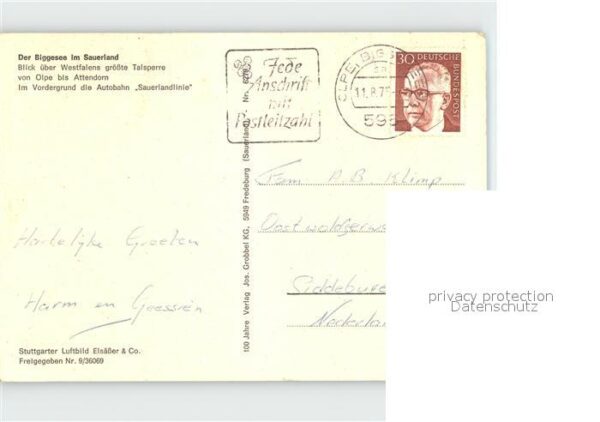 Der Biggesee im Sauerland
Blick über Westfalens größte Talsperre
von Olpe bis Attendorn
Im Vordergrund die Autobahn „Sauerlandlinie"
Jede
Anschrift
mit
Postleitzahl
OLPE, BIGG
11.8.75
596
30 DEUTSCHE
BUNDESPOST
Fam A.B. Klimp
Oostwoldjerwe
Siddebure
Nederlan
Hartelijke Groeten
Harm en Geessien
100 Jahre Verlag Jos. Grobbel KG, 5949 Fredeburg (Sauerland) Nr.
Stuttgarter Luftbild Elsäßer & Co.
Freigegeben Nr. 9/36069
privacy protection
Datenschutz